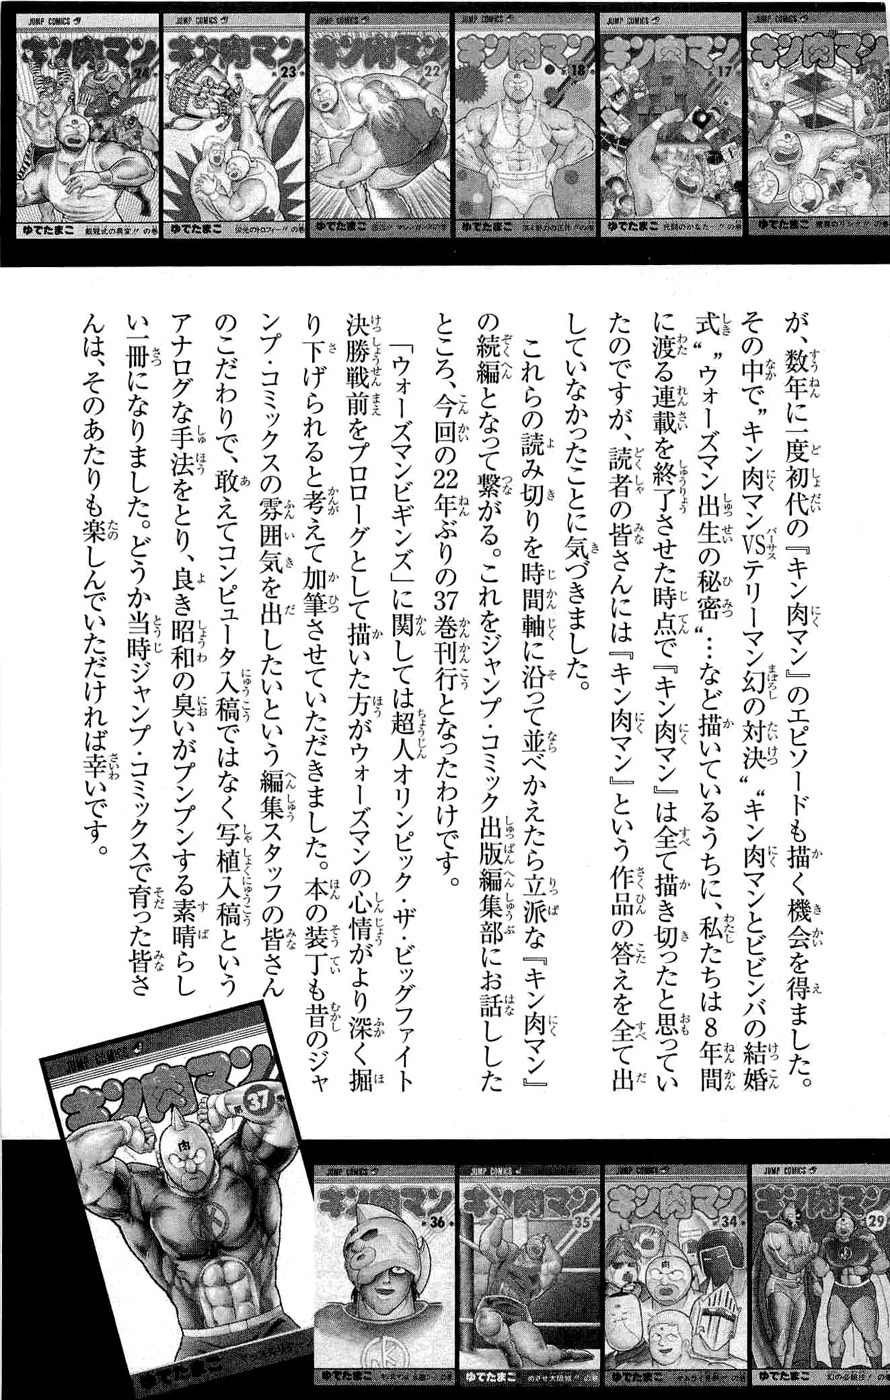 JUMP COMICS
キン肉マン
24
ゆでたまご
JUMP COMICS
キン肉マン
23
ゆでたまご
栄光のトロフィー!!の巻
JUMP COMICS
キン肉マン
22
ゆでたまご
JUMP COMICS
キン肉マン
18
ゆでたまご
JUMP COMICS
キン肉マン
17
ゆでたまご
JUMP COMICS
キン肉マン
ゆでたまご
が、数年に一度初代の『キン肉マン』のエピソードも描く機会を得ました。
その中で”キン肉マンVSテリーマン幻の対決“”キン肉マンとビビンバの結婚
式“”ウォーズマン出生の秘密“…など描いているうちに、私たちは8年間
に渡る連載を終了させた時点で『キン肉マン』は全て描き切ったと思ってい
たのですが、読者の皆さんには『キン肉マン』という作品の答えを全て出
していなかったことに気づきました。
これらの読み切りを時間軸に沿って並べかえたら立派な『キン肉マン』
の続編となって繋がる。これをジャンプ・コミック出版編集部にお話しした
ところ、今回の22年ぶりの37巻刊行となったわけです。
「ウォーズマンビギンズ」に関しては超人オリンピック・ザ・ビッグファイト
決勝戦前をプロローグとして描いた方がウォーズマンの心情がより深く掘
り下げられると考えて加筆させていただきました。本の装丁も昔のジャ
ンプ・コミックスの雰囲気を出したいという編集スタッフの皆さん
のこだわりで、敢えてコンピュータ入稿ではなく写植入稿という
アナログな手法をとり、良き昭和の臭いがプンプンする素晴らし
い一冊になりました。どうか当時ジャンプ・コミックスで育った皆さ
んは、そのあたりも楽しんでいただければ幸いです。
JUMP COMICS
キン肉マン
37
ゆでたまご
JUMP COMICS
キン肉マン
36
ゆでたまご
JUMP COMICS
キン肉マン
35
ゆでたまご
JUMP COMICS
キン肉マン
34
ゆでたまご
JUMP COMICS
キン肉マン
29
ゆでたまご